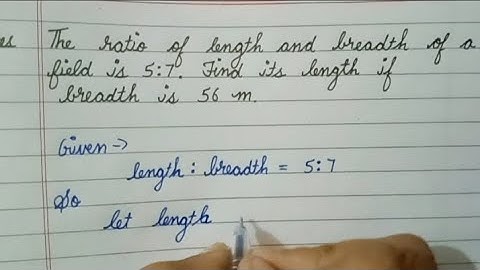 es The ratio of length and breadth of a
field is 5:7. Find its length if
breadth is 56 m.
Given →
length : breadth = 5:7
So
let length